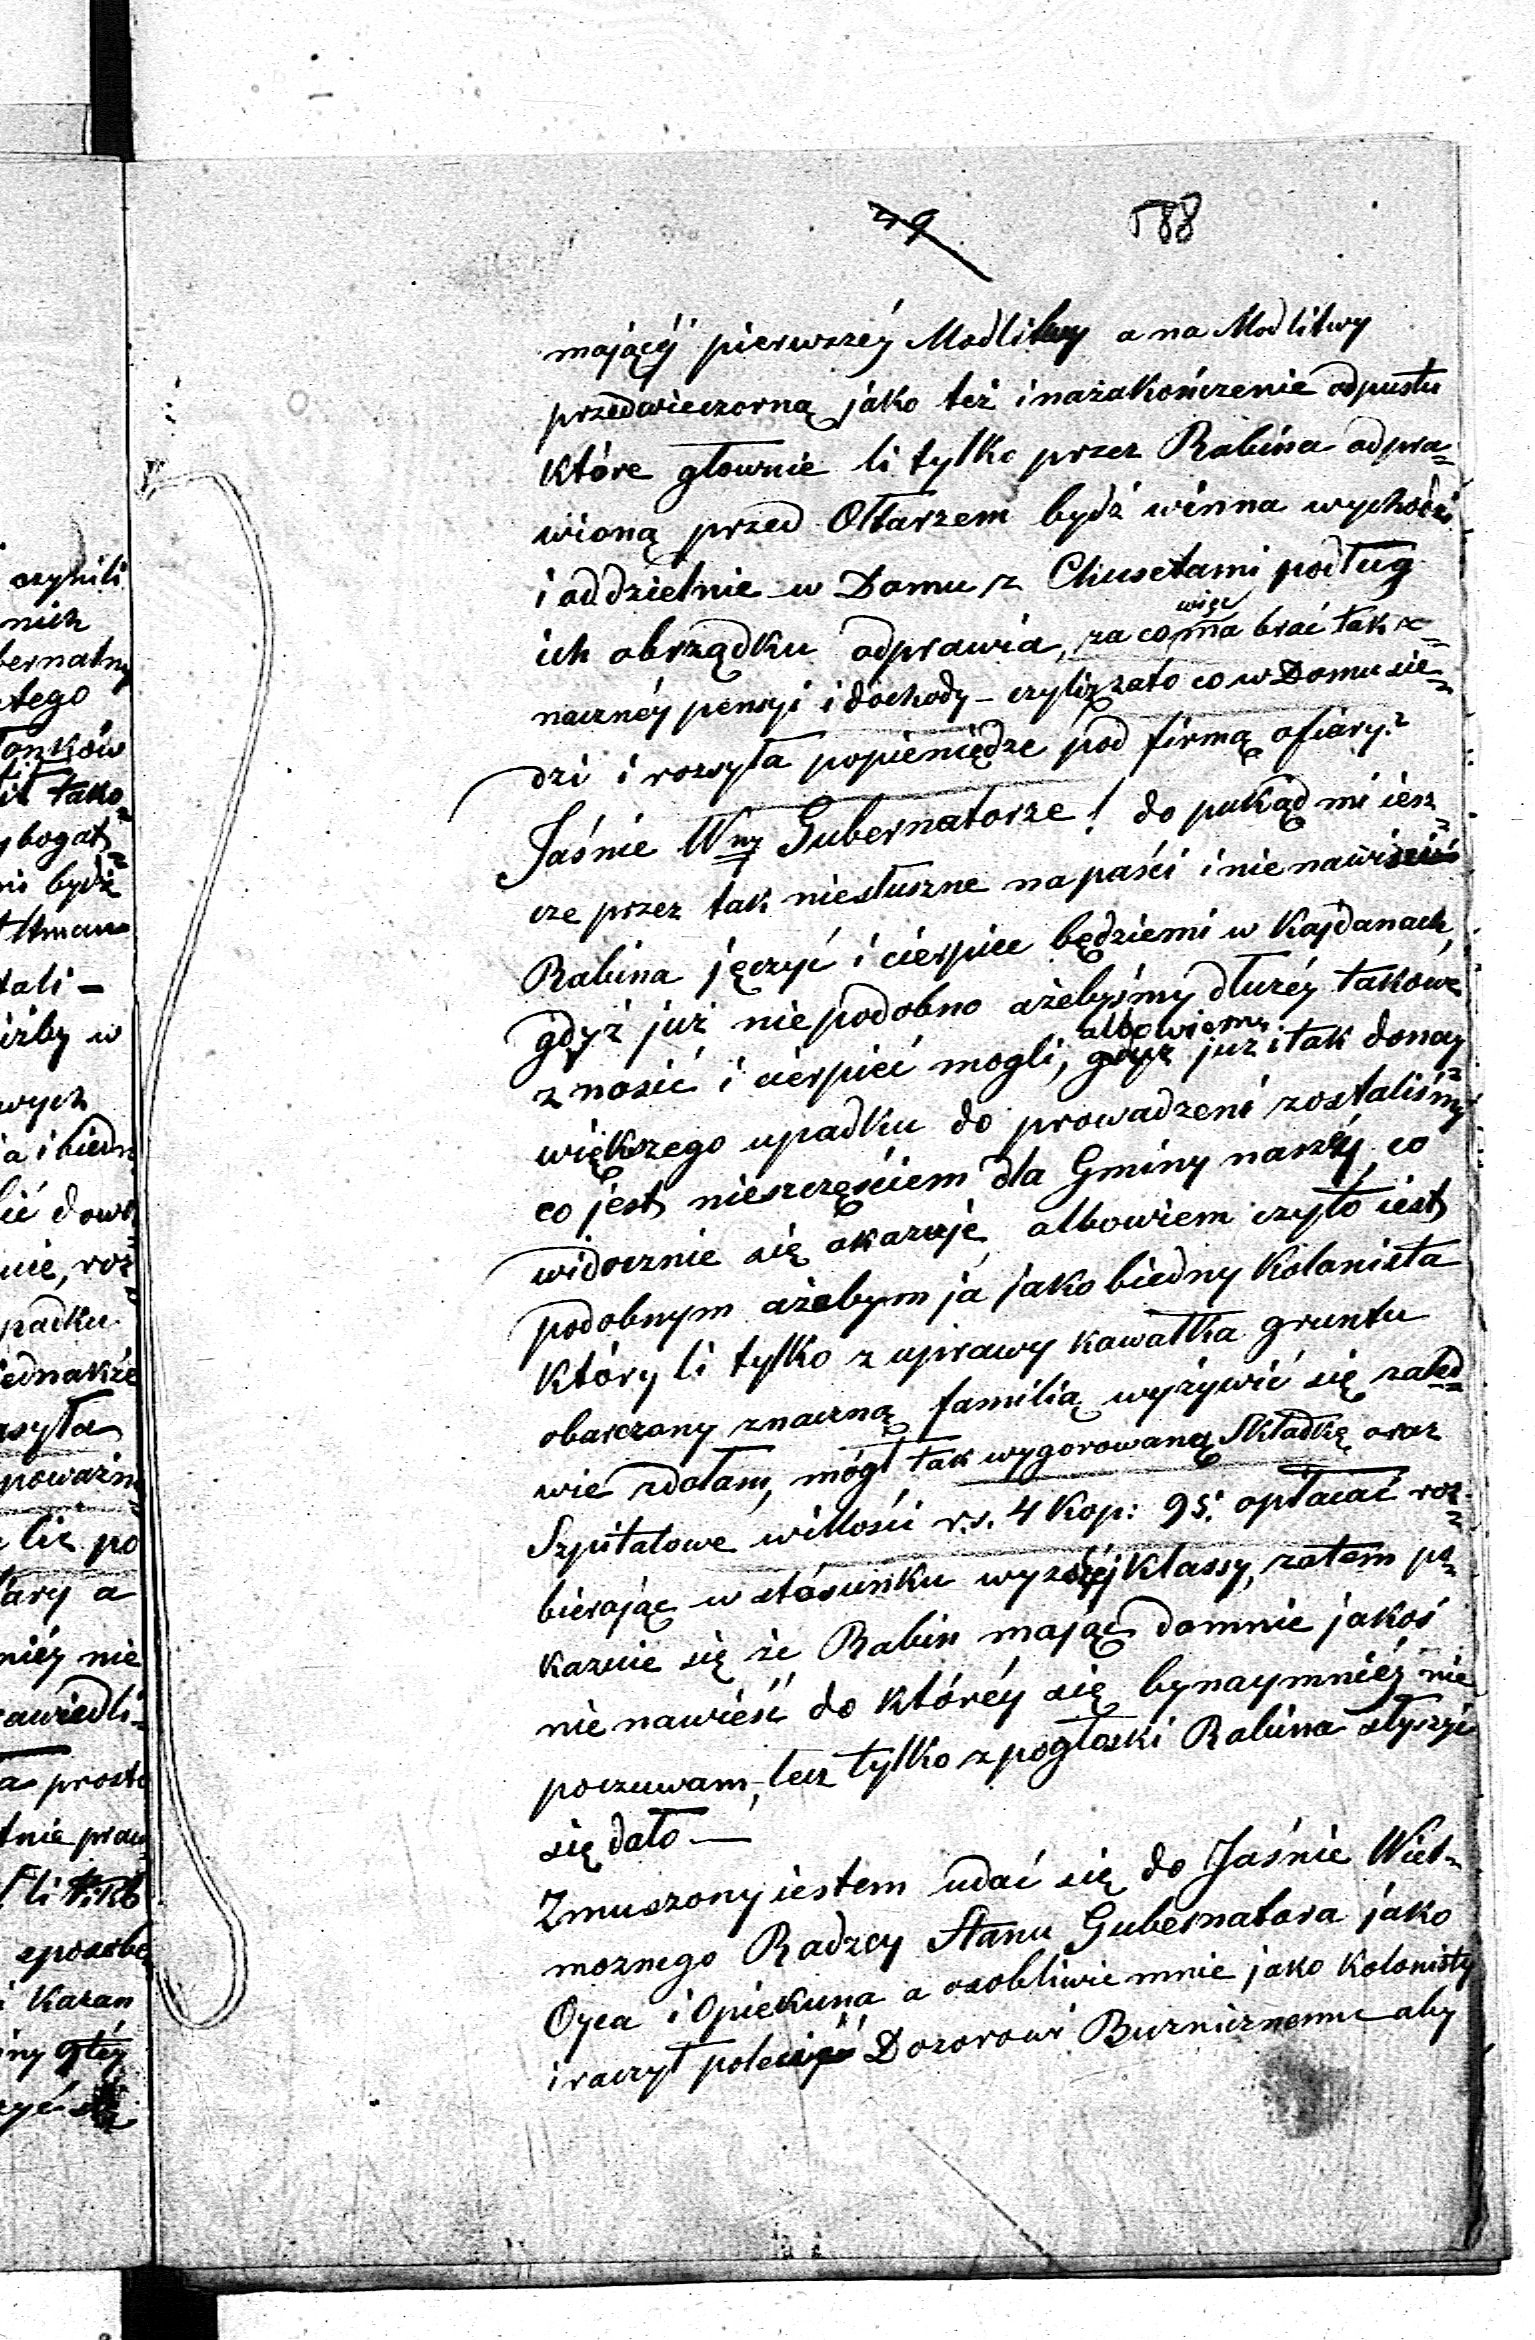 49 588
mającéj pierwszéy Modlitwy a na Modlitwy
przedwieczorną jako też i na zakończenie odpustu
które głownie li tylko przez Rabina odpra=
wioną przed Ołtarzem bydź winna wychodzi
i oddzielnie w Domu z Chusetami podług
ich obrządku odprawia, za co więc ma brać tak z=
nacznéy pensyi i dochody – czyliż zato co w Domu sie=
dzi i rozsyła popieniędze pod firmą ofiary?
Jaśnie Wny Gubernatorze! do pukąd mi iesz=
cze przez tak niesłuszne napaści i nienawiści
Rabina jęczyć i cierpice będziemi w Kajdanach,
gdyż już niepodobno ażebyśmy dłużéy takowe
znosić i cierpieć mogli, albowiem już i tak donay
większego upadku do prowadzeni zostaliśmy
co jest nieszczęściem dla Gminy naszéy, co
widocznie się okazuje, albowiem czyto iest
podobnym ażebym ja jako biedny Kolonista
który li tylko z uprawy kawałka gruntu
obarczony znaczną familią wyżywić się zaled=
wie zdołam, mógł tak wygorowaną Składkę oraz
Szpitalowe wilłości r.s. 4 Kop: 95. opłacać roz=
bierając w stósunku wyzszéj klassy, zatem po=
kazuie się że Rabin mając domnie jakoś
nie nawieść do któréy się bynaymniéj nie
poczuwam, lecz tylko z pogłoski Rabina słyszyć
się dało —
Zmuszony iestem udać się do Jaśnie Wiel=
moznego Radzcy Stanu Gubernatora jako
Oyca i Opiekuna a osobliwie mnie jako Kolonisty
i raczył polecić Dozorowi Buzniznemu aby
czynili
nich
bernatny
tego
ybogat=
ni bydź
tali –
izby w
wych
padku
ednakże
poważn
po
niéy nie
awiedli=
prosto
Kazan